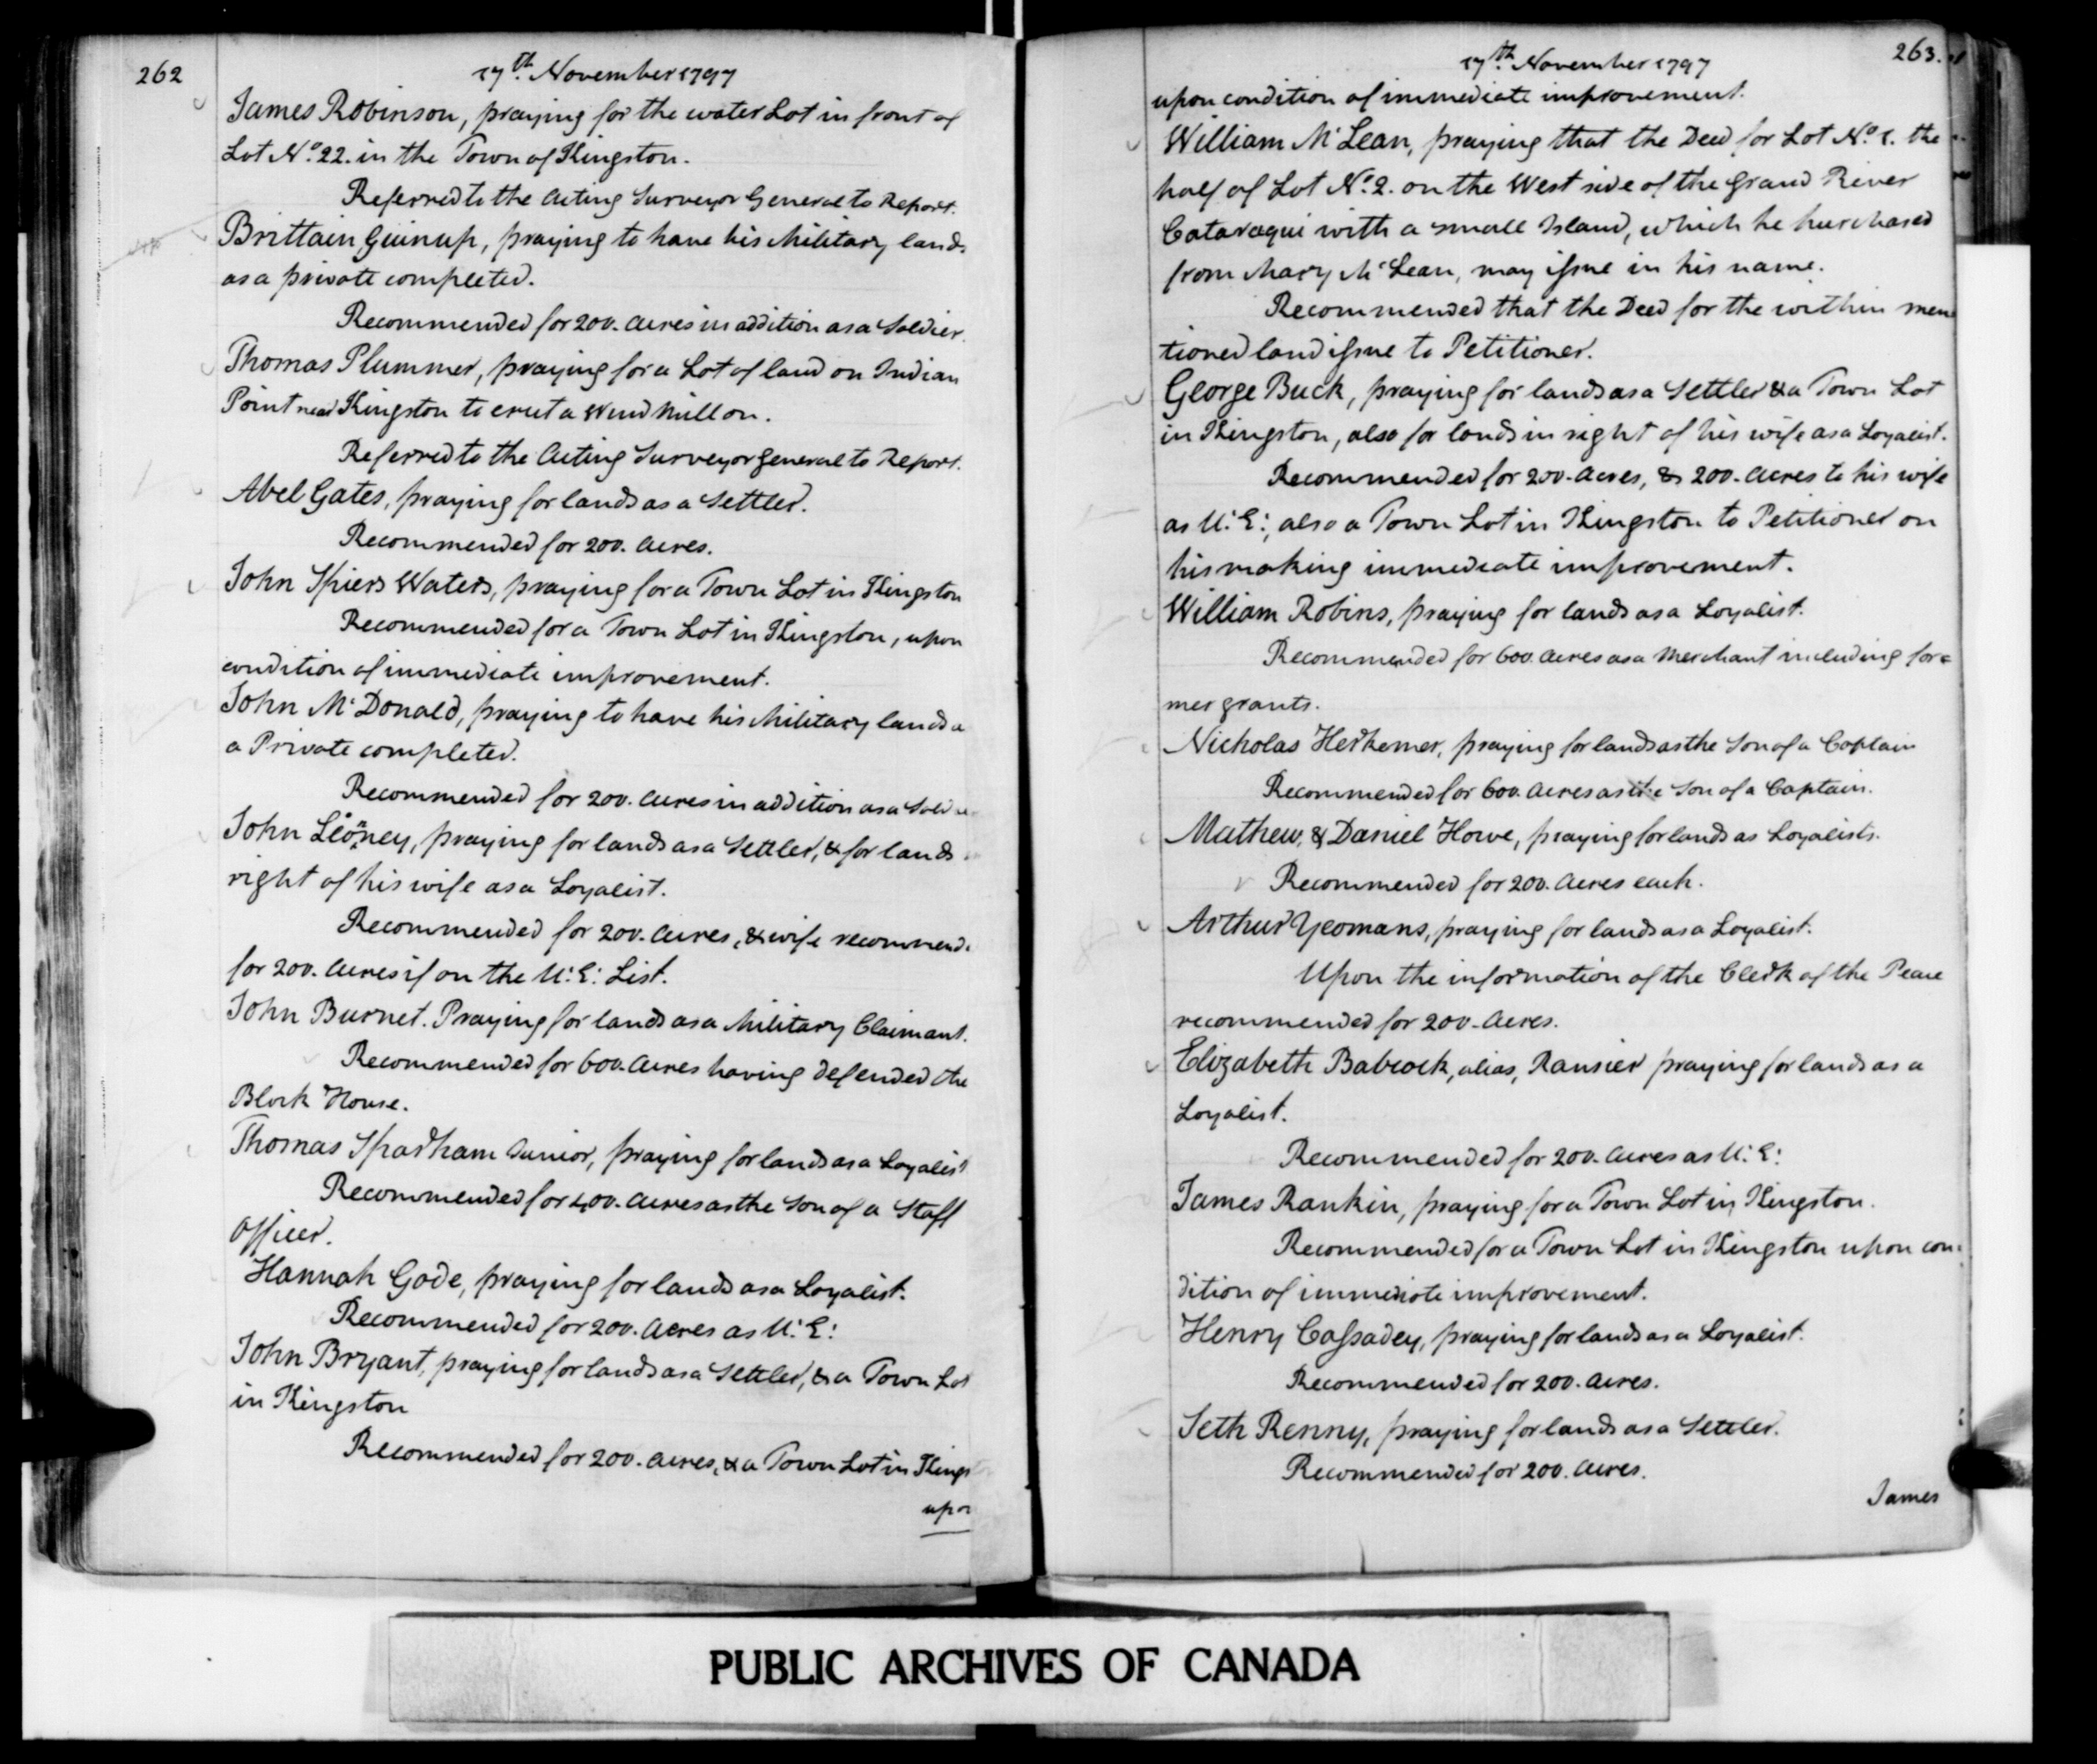 262
17th November 1797
James Robinson, praying for the water Lot in front of
Lot No. 22. in the Town of Kingston.
Referred to the Acting Surveyor General to Report.
Brittain Guinup, praying to have his Military lands
as a private completed.
Recommended for 200. Acres in addition as a Soldier.
Thomas Plummer, praying for a Lot of land on Indian
Point near Kingston to erect a Wind Mill on.
Referred to the Acting Surveyor General to Report.
Abel Gates, praying for lands as a Settler.
Recommended for 200. Acres.
John Spiers Waters, praying for a Town Lot in Kingston
Recommended for a Town Lot in Kingston, upon
condition of immediate improvement.
John McDonald, praying to have his Military lands a
a Private completed.
Recommended for 200. Acres in addition as a Soldie
John Looney, praying for lands as a Settler, & for lands
right of his wife as a Loyalist.
Recommended for 200. Acres, & wife recommend.
for 200. Acres if on the U:E: List.
John Burnet. Praying for lands as a Military Claimant.
Recommended for 600. Acres having defended the
Block House.
Thomas Sparham Junior, praying for lands as a Loyalist
Recommended for 400. Acres as the Son of a Staff
Officer.
Hannah Gode, praying for lands as a Loyalist.
Recommended for 200. Acres as U:E:
John Bryant, praying for lands as a Settler, & a Town Lot
in Kingston
Recommended for 200. Acres, & a Town Lot in Kingst
upon
263.
17th November 1797
upon condition of immediate improvement.
William McLean, praying that the Deed for Lot No. 1. the
half of Lot No. 2. on the West side of the Grand River
Cataraqui with a small Island, which he purchased
from Mary McLean, may issue in his name.
Recommended that the Deed for the within men
tioned land issue to Petitioner.
George Buck, praying for lands as a Settler & a Town Lot
in Kingston, also for lands in right of his wife as a Loyalist.
Recommended for 200. Acres, & 200. Acres to his wife
as U:E:, also a Town Lot in Kingston to Petitioner on
his making immediate improvement.
William Robins, praying for lands as a Loyalist.
Recommended for 600. Acres as a Merchant including for=
mer grants.
Nicholas Herkemer, praying for lands as the Son of a Captain
Recommended for 600. Acres as the Son of a Captain.
Mathew, & Daniel Howe, praying for lands as Loyalists.
Recommended for 200. Acres each.
Arthur Yeomans, praying for lands as a Loyalist.
Upon the information of the Clerk of the Peace
recommended for 200. Acres.
Elizabeth Babcock, alias, Ransier praying for lands as a
Loyalist.
Recommended for 200. Acres as U:E:
James Rankin, praying for a Town Lot in Kingston.
Recommended for a Town Lot in Kingston upon con:
dition of immediate improvement.
Henry Cassadey, praying for lands as a Loyalist.
Recommended for 200. Acres.
Seth Renny, praying for lands as a Settler.
Recommended for 200. Acres.
James
PUBLIC ARCHIVES OF CANADA